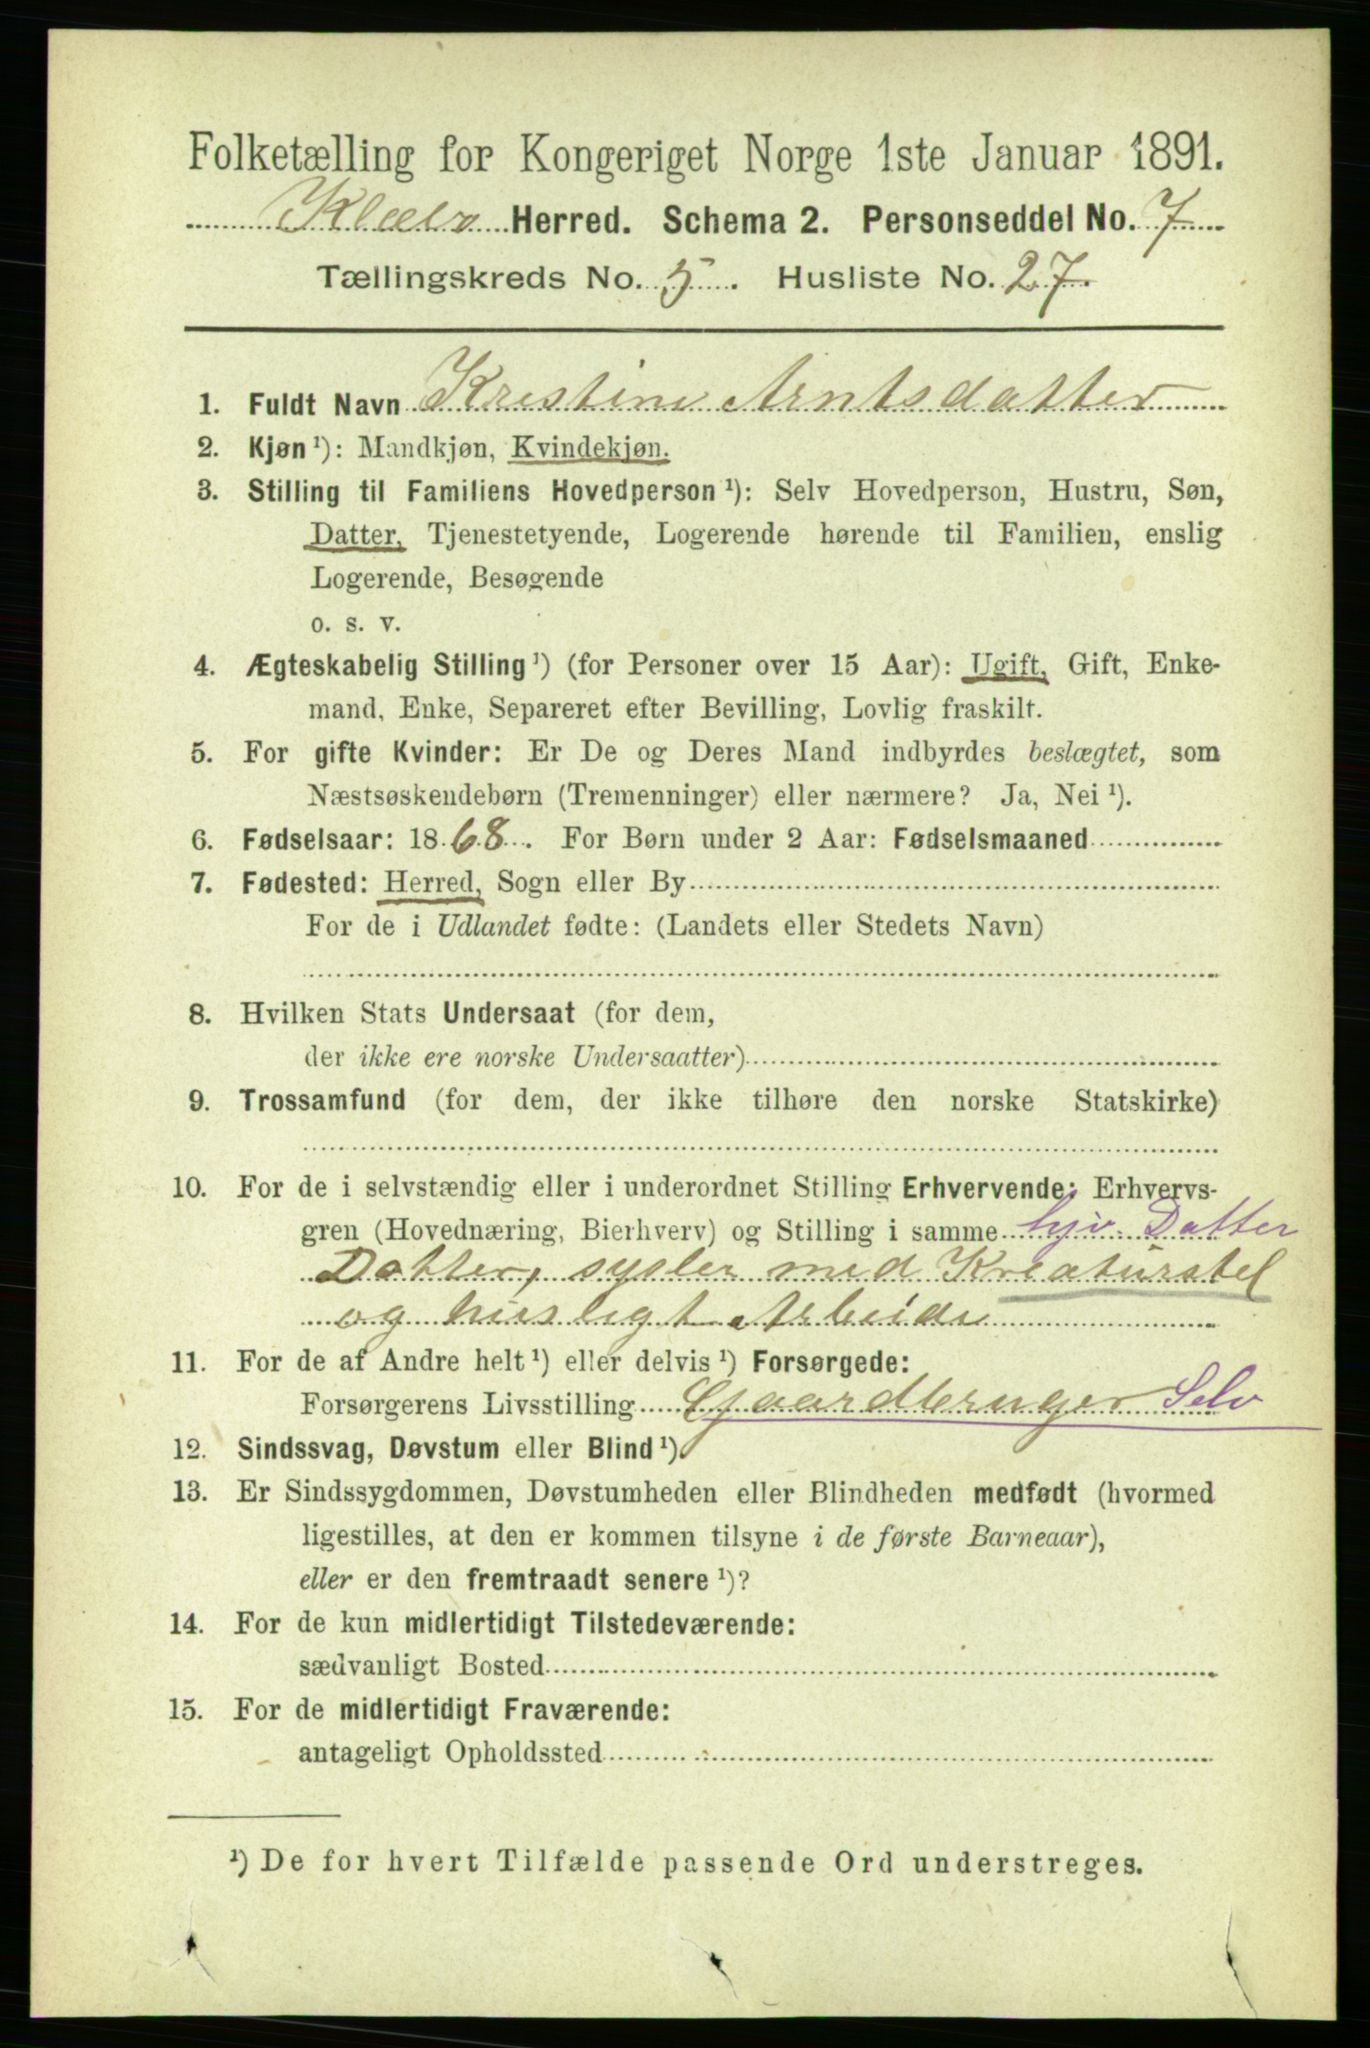 Folketælling for Kongeriget Norge 1ste Januar 1891.
Klæbo Herred. Schema 2. Personseddel No. 7
Tællingskreds No. 5. Husliste No. 27.
1. Fuldt Navn Kristine Arntsdatter
2. Kjøn ¹): Mandkjøn, Kvindekjøn.
3. Stilling til Familiens Hovedperson ¹): Selv Hovedperson, Hustru, Søn,
Datter, Tjenestetyende, Logerende hørende til Familien, enslig
Logerende, Besøgende
o. s. v.
4. Ægteskabelig Stilling ¹) (for Personer over 15 Aar): Ugift, Gift, Enke-
mand, Enke, Separeret efter Bevilling, Lovlig fraskilt.
5. For gifte Kvinder: Er De og Deres Mand indbyrdes beslægtet, som
Næstsøskendebørn (Tremenninger) eller nærmere? Ja, Nei ¹).
6. Fødselsaar: 1868. For Børn under 2 Aar: Fødselsmaaned
7. Fødested: Herred, Sogn eller By
For de i Udlandet fødte: (Landets eller Stedets Navn)
8. Hvilken Stats Undersaat (for dem,
der ikke ere norske Undersaatter)
9. Trossamfund (for dem, der ikke tilhøre den norske Statskirke)
10. For de i selvstændig eller i underordnet Stilling Erhvervende: Erhvervs-
gren (Hovednæring, Bierhverv) og Stilling i samme hjv. Datter
Datter, sysler med Kreaturstel
og husligt Arbeide
11. For de af Andre helt ¹) eller delvis ¹) Forsørgede:
Forsørgerens Livsstilling Gaardbruger Selv
12. Sindssvag, Døvstum eller Blind ¹).
13. Er Sindssygdommen, Døvstumheden eller Blindheden medfødt (hvormed
ligestilles, at den er kommen tilsyne i de første Barneaar),
eller er den fremtraadt senere ¹)?
14. For de kun midlertidigt Tilstedeværende:
sædvanligt Bosted
15. For de midlertidigt Fraværende:
antageligt Opholdssted
¹) De for hvert Tilfælde passende Ord understreges.